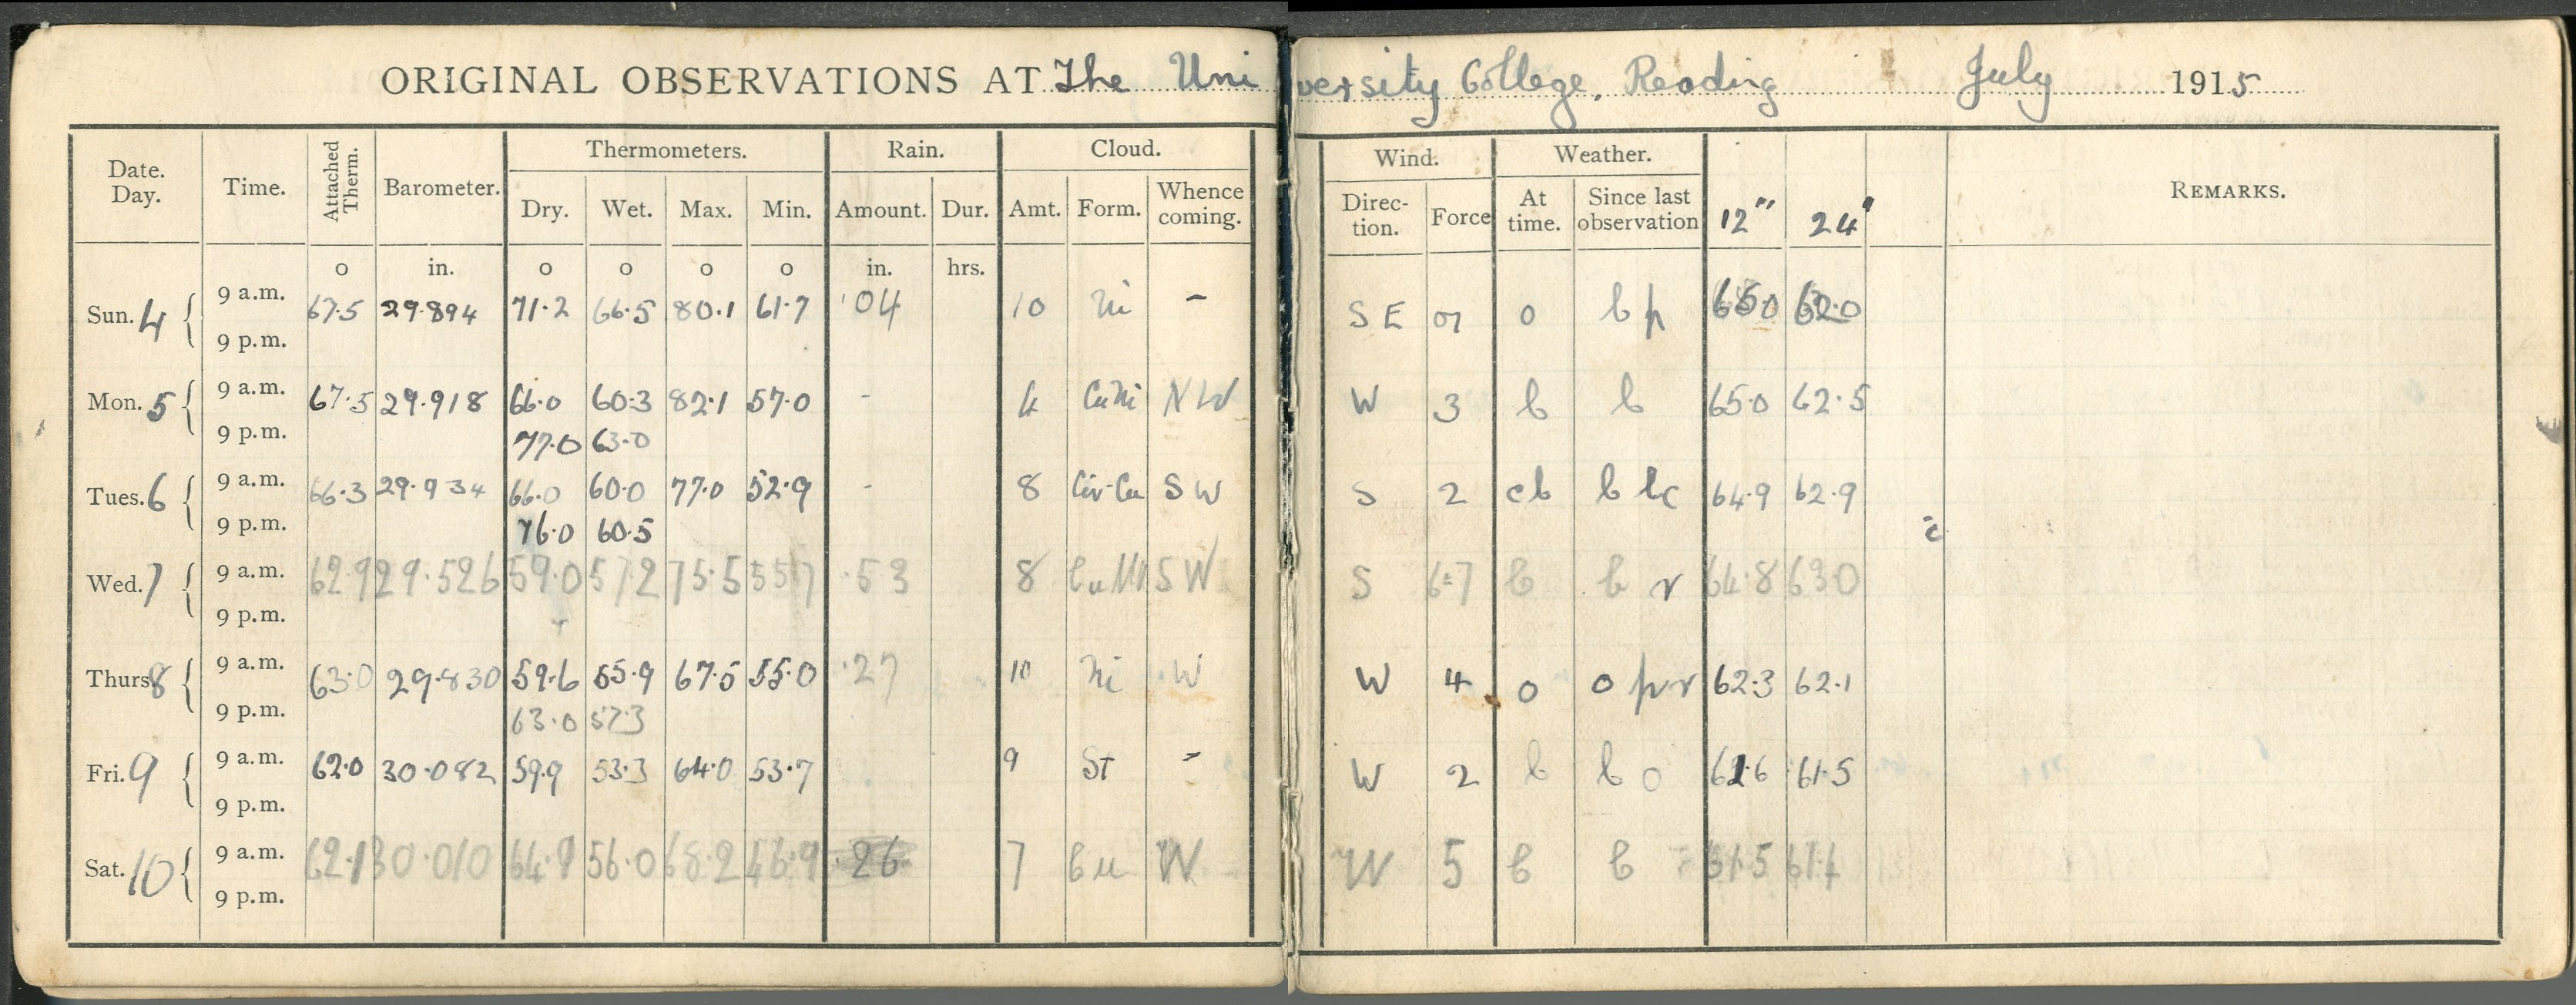 ORIGINAL OBSERVATIONS AT The University College, Reading July 1915
Date. Day. Time. Attached Therm. Barometer. Thermometers. Rain. Cloud. Wind. Weather. 12" 24" REMARKS.
Dry. Wet. Max. Min. Amount. Dur. Amt. Form. Whence coming. Direc-tion. Force At time. Since last observation
o in. o o o o in. hrs.
Sun. 4 9 a.m. 67.5 29.894 71.2 66.5 80.1 61.7 .04 10 Ni - S E o b p 65.0 62.0
9 p.m.
Mon. 5 9 a.m. 67.5 29.918 66.0 60.3 82.1 57.0 - 4 CuNi NW W 3 b b 65.0 62.5
9 p.m. 77.0 63.0
Tues. 6 9 a.m. 66.3 29.934 66.0 60.0 77.0 52.9 - 8 Cir-Cu S W S 2 cb b bc 64.9 62.9
9 p.m. 76.0 60.5
c
Wed. 7 9 a.m. 62.9 29.526 59.0 57.2 75.5 55.7 .53 8 CuNi S W S 6-7 b b r 64.8 63.0
9 p.m.
Thurs. 8 9 a.m. 63.0 29.830 59.6 55.9 67.5 55.0 .27 10 Ni W W 4 o o p r 62.3 62.1
9 p.m. 63.0 57.3
Fri. 9 9 a.m. 62.0 30.082 59.9 53.3 64.0 53.7 9 St - W 2 b b o 61.6 61.5
9 p.m.
Sat. 10 9 a.m. 62.1 30.010 64.9 56.0 68.2 56.9 .26 7 Cu W W 5 b b 61.5 61.4
9 p.m.